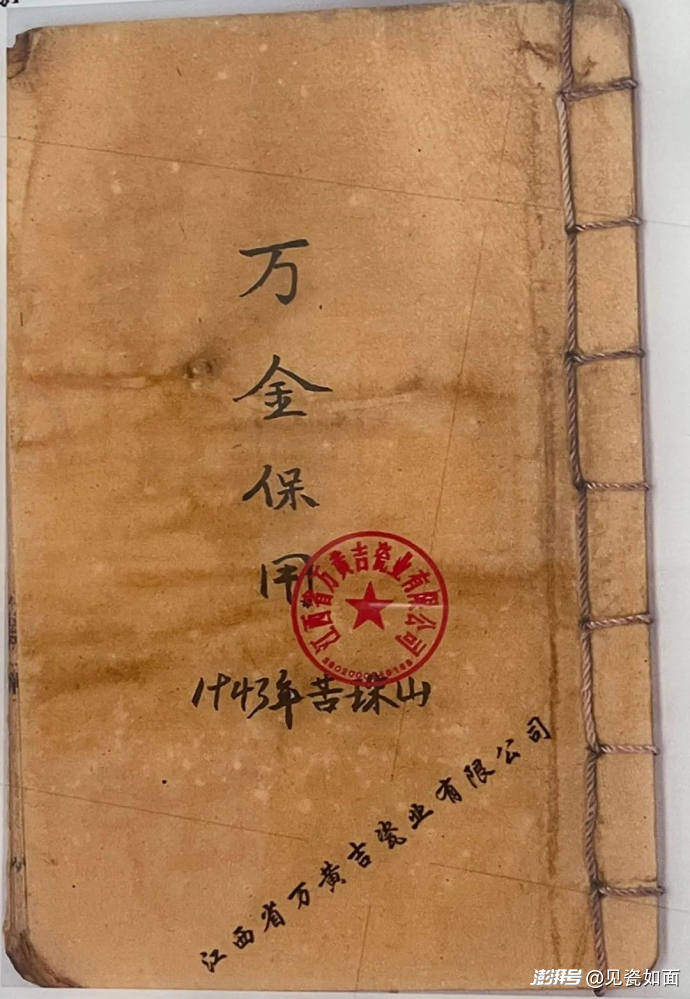 万金保用
江西省万黄吉瓷业有限公司
1943年苦珠山
江西省万黄吉瓷业有限公司
澎湃号@见瓷如面